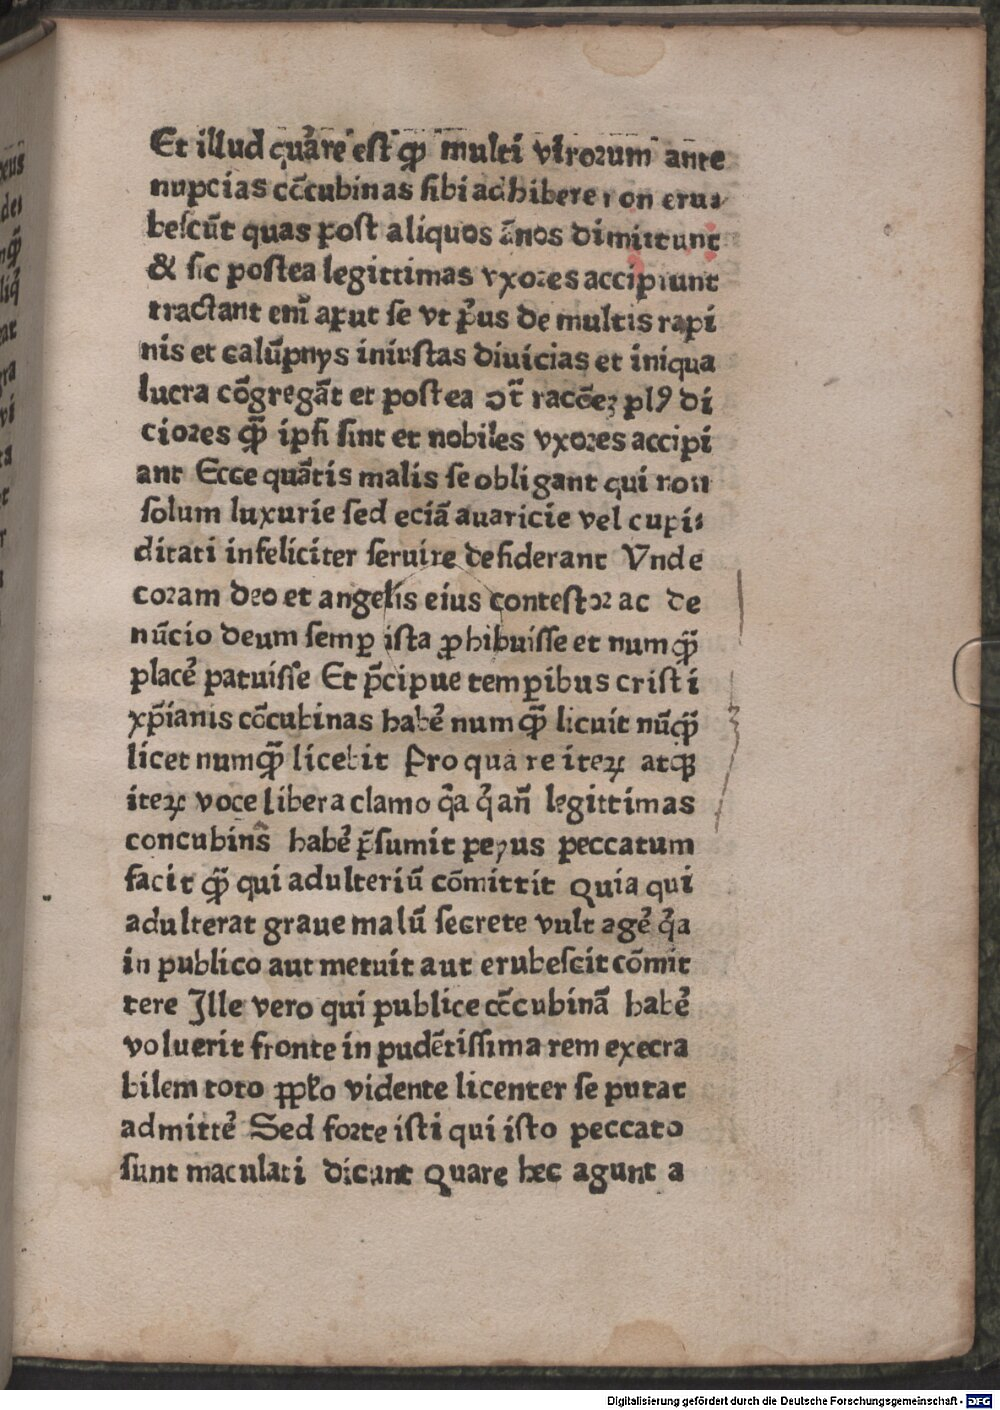 Et illud quãre est qꝫ̃ multi virorum ante
nupcias cõcubinas sibi adhibere non eru⸗
bescũt quas post aliquos ãnos dimittunt
& sic postea legittimas vxores accipiunt
tractant em̄ aput se vt pͥus de multis rapi
nis et calũpnys iniustas diuicias et iniqua
lucra cõgregãt et postea ↄt̃ racõeꝫ plꝰ di
ciores qꝫ̃ ipsi sint et nobiles vxores accipi
ant Ecce quãtis malis se obligant qui non
solum luxurie sed eciã auaricie vel cupi⸗
ditati infeliciter seruire desiderant Vnde
coram deo et angelis eius contestor ac de
nũcio deum semꝑ ista ꝓhibuisse et numqꝫ̃
placẽ patuisse Et p̃cipue temꝑibus cristi
xp̃ianis cõcubinas habẽ numqꝫ̃ licuit nũqꝫ̃
licet numqꝫ̃ licebit Pro qua re iteꝝ atqꝫ
iteꝝ voce libera clamo qͥa qͥ añ legittimas
concubinas̃ habẽ p̃sumit peyus peccatum
facit qꝫ̃ qui adulteriũ cõmittit Quia qui
adulterat graue malũ secrete vult agẽ qͥa
in publico aut metuit aut erubescit cõmit
tere Ille vero qui publice cõcubinã habẽ
voluerit fronte in pudẽtissima rem execra
bilem toto ꝓpło vidente licenter se putat
admittẽ Sed forte isti qui isto peccato
sunt maculati dicunt Quare hec agunt a
Digitalisierung gefördert durch die Deutsche Forschungsgemeinschaft - DFG